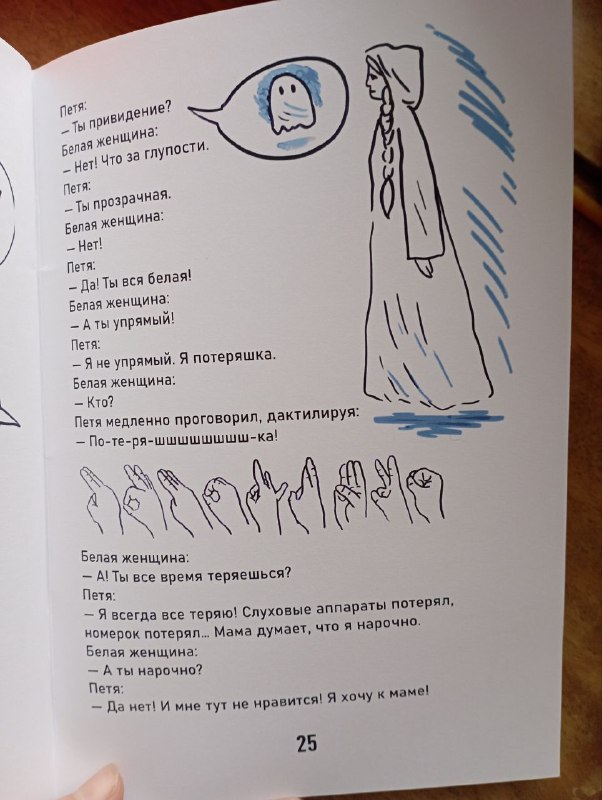 Петя:
– Ты привидение?
Белая женщина:
– Нет! Что за глупости.
Петя:
– Ты прозрачная.
Белая женщина:
– Нет!
Петя:
– Да! Ты вся белая!
Белая женщина:
– А ты упрямый!
Петя:
– Я не упрямый. Я потеряшка.
Белая женщина:
– Кто?
Петя медленно проговорил, дактилируя:
– По-те-ря-шшшшшшшш-ка!
Белая женщина:
– А! Ты все время теряешься?
Петя:
– Я всегда все теряю! Слуховые аппараты потерял,
номерок потерял... Мама думает, что я нарочно.
Белая женщина:
– А ты нарочно?
Петя:
– Да нет! И мне тут не нравится! Я хочу к маме!
25